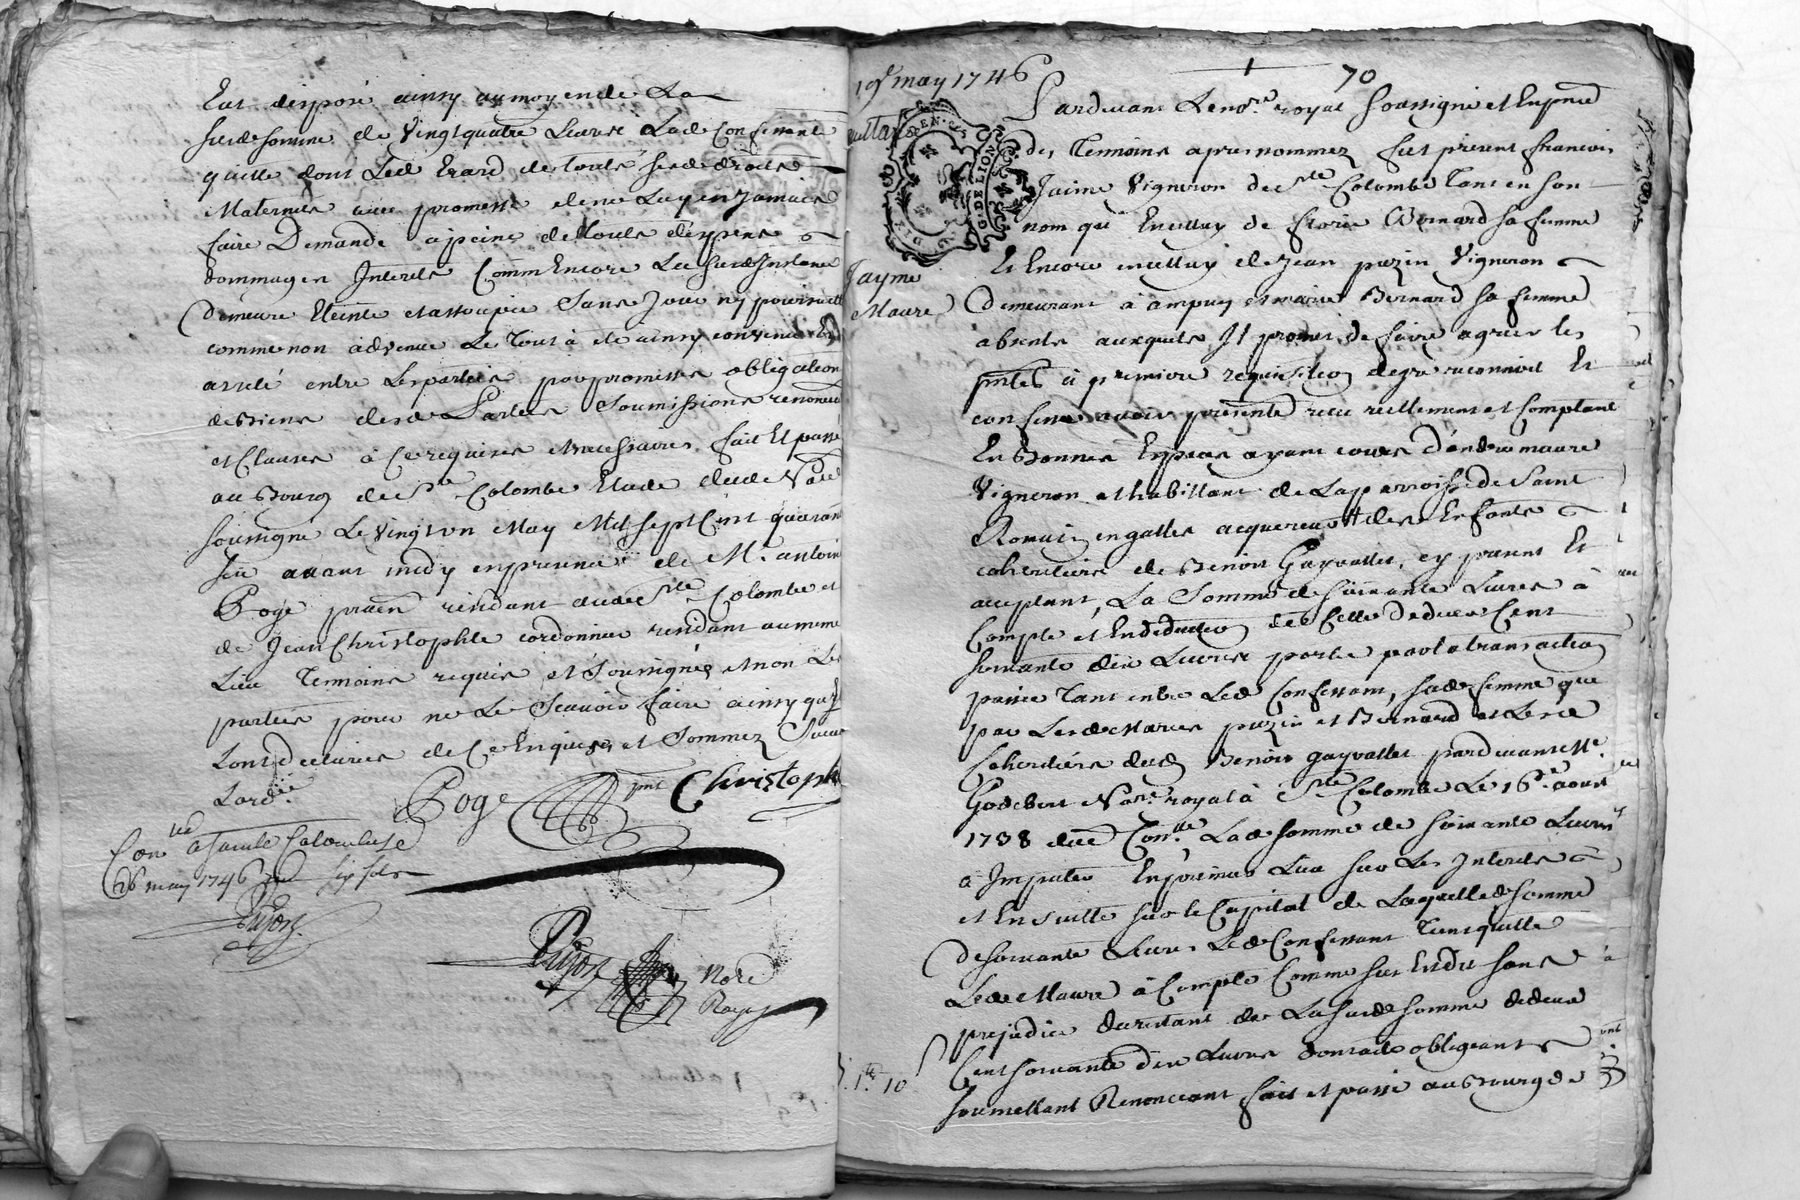 Est disposé ainsy au moyen de La
susd somme de Vingt quatre Livres Lad Confessante
quitte dont Led Erard de touts sesd droits
Maternels avec promesse de ne Luy en Jamais
faire Demande à peine de touts dépens
dommages Interets Comm Encore La susd Instance
Demeure Eteinte et assoupie Sans Jour ny poursuitte
comme non advenue Le Tout à été ainsy convenu Et
arreté entre Les parties par promesses obligation
de Biens desd Parties Soumissions renonce
et Clauses à Ce requises et necessaires fait Et passé
au Bourg de Ste Colombe Etude dud No
soussigné Le Vingt un May Mil Sept Cent quarante
Six avant midy en presence de Mr antoine
Poge praen residant aud Ste Colombe et
de Jean Christophle cordonnier residant au meme
Lieu Temoins requis et Soussignés et non Les
parties pour ne Le Scavoir faire ainsy qu'ils
L'ont declarés de Ce Enquises et Sommez
Poge pnt Christoph
Con à Sainte Colombe le
26 may 1746 six sols
Dujon
Dujon Nore
Royal
19 may 1746 70
Pardevant Le nore royal soussigné et En pnce
des Temoins apres nommez fut present francois
Jaime Vigneron de Ste Colombe tant en son
nom qu'En celluy de florie Bernard sa femme
Et Encore en celluy de Jean puzin Vigneron
Jayme
Maure
Demeurant à ampuy et marie Bernard sa femme
absents auxquels Il promet de faire agreer les
pntes à premiere requisition degré reconnoit Et
confesse avoir presentemt recu reellement et Comptant
En Bonnes Especes ayant cours d'andré maure
Vigneron et habittant de La parroisse de Saint
Romain en galles acquereur desd Enfants
coheritiers de Benoit Gayvallet, cy present Et
acceptant, La Somme de soixante Livres à
Compte et En deduction de Celle de deux Cent
soixante dix Livres portée par la transaction
passée tant entre Led Confessant, sad femme que
par Lesd Mariés puzin et Bernard et Lesd
Coheritiers dud Benoit gayvallet pardevant Me
Godebert Nore royal à Ste Colombe Le 16e aoust
1738 Lad Somme de soixante Livres
à Imputer En premier Lieu sur Les Interets
et En suitte sur le Capital de Laquelle Somme
de soixante Livres Led Confessant Tient quitte
Led Maure à Compte Comme sus Est dit sans
prejudice du restant de La susd Somme de deux
Cent soixante dix Livres dont acte obligeant
soumettant Renonceant fait et passé au Bourg de